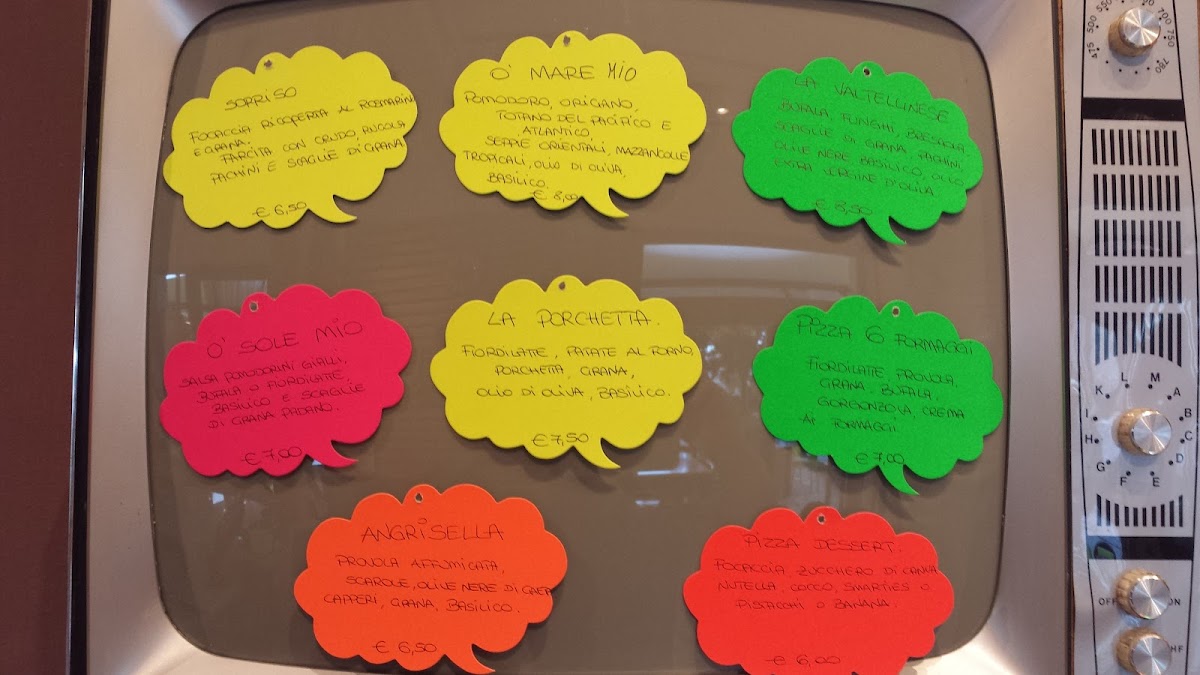 SORRISO
FOCACCIA RICOPERTA AL ROSMARINO
E GRANA.
FARCITA CON CRUDO, RUCOLA
PACHINI E SCAGLIE DI GRANA
€ 6,50
O' MARE MIO
POMODORO, ORIGANO,
TOTANO DEL PACIFICO E
ATLANTICO,
SEPPIE ORIENTALI, MAZZANCOLLE
TROPICALI, OLIO DI OLIVA,
BASILICO.
€ 8,00
LA VALTELLINESE
BUFALA, FUNGHI, BRESAOLA,
SCAGLIE DI GRANA, PACHINI,
OLIVE NERE BASILICO, OLIO
EXTRA VERGINE D'OLIVA
€ 8,50
O' SOLE MIO
SALSA POMODORINI GIALLI,
BUFALA O FIORDILATTE,
BASILICO E SCAGLIE
DI GRANA PADANO.
€ 7,00
LA PORCHETTA.
FIORDILATTE, PATATE AL FORNO,
PORCHETTA, GRANA,
OLIO DI OLIVA, BASILICO.
€ 7,50
PIZZA 6 FORMAGGI
FIORDILATTE PROVOLA,
GRANA, BUFALA,
GORGONZOLA, CREMA
AI FORMAGGI.
€ 7,00
ANGRISELLA
PROVOLA AFFUMICATA,
SCAROLE, OLIVE NERE DI GAETA
CAPPERI, GRANA, BASILICO.
€ 6,50
PIZZA DESSERT.
FOCACCIA ZUCCHERO DI CANNA
NUTELLA, COCCO, SMARTIES O
PISTACCHI O BANANA
€ 6,00
475 500 550 700 750 780
K L M A B C D E F G H I
OFF ON
HF